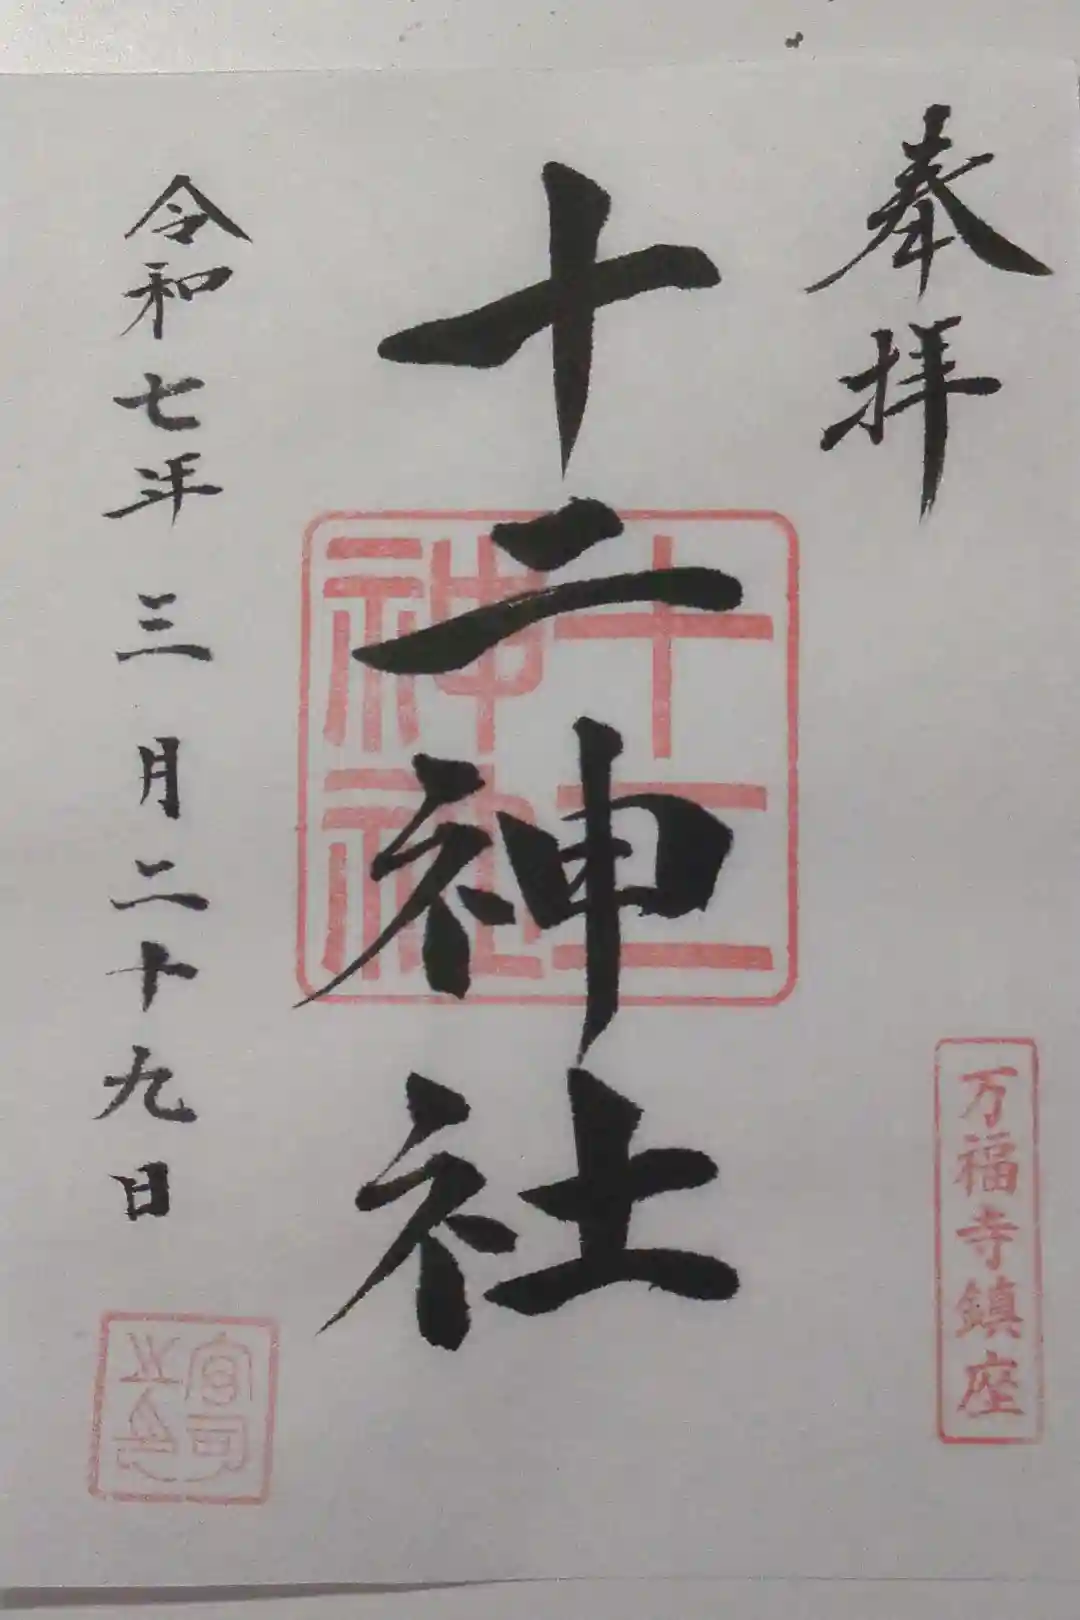 奉拝
万福寺鎮座
十二神社
十二
神社
令和七年三月二十九日
宮司
之印